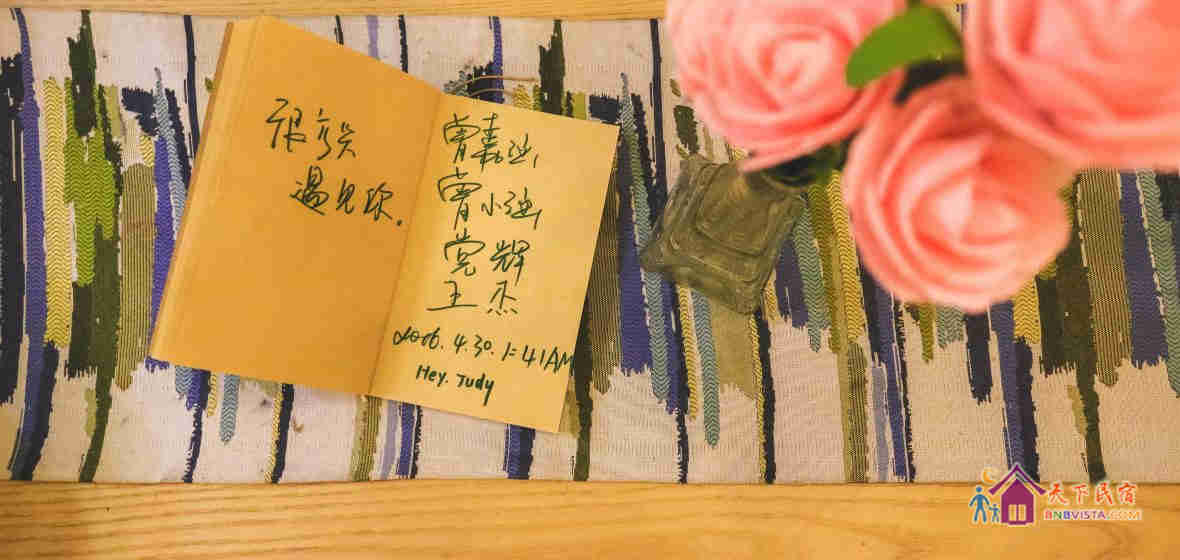 很高兴
遇见你。
曾嘉涵
曾小涵
党辉
王杰
2016.4.30.1:41AM
Hey. Judy
天下民宿
BNBVISTA.COM